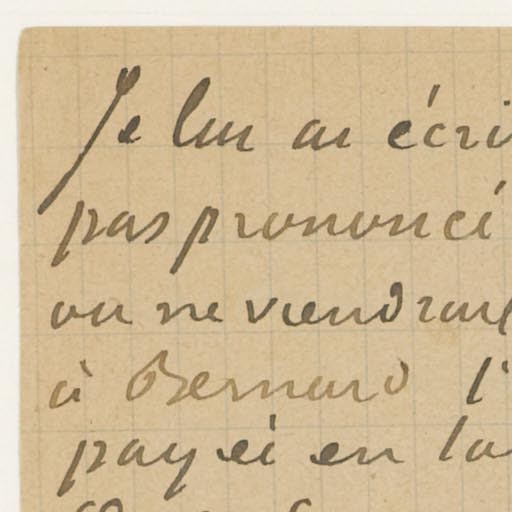 Je lui ai écri
pas prononcé
ou ne viendrait
à Bernard l'
payéi en la